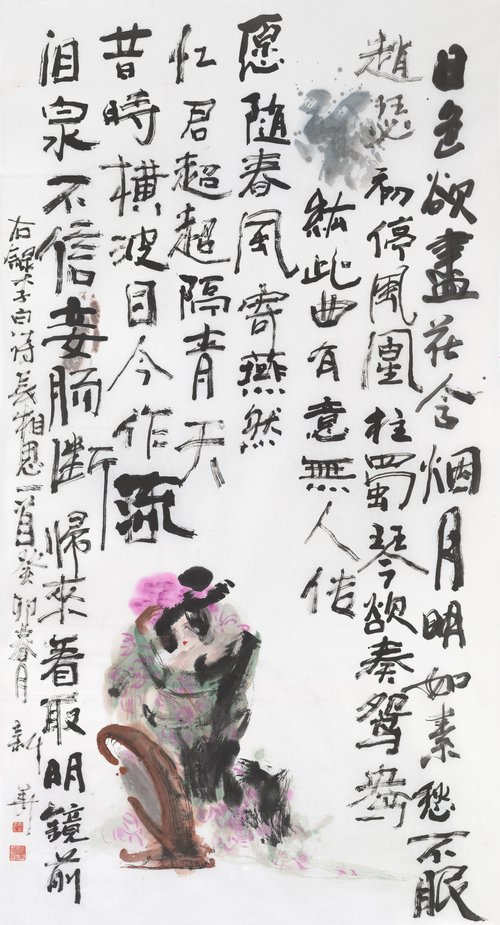 日色欲盡花含烟月明如素愁不眠
趙瑟初停鳳凰柱蜀琴欲奏鴛鴦
絃此曲有意無人传
愿随春風寄燕然
忆君超超隔青天
昔時橫波目今作流
泪泉不信妾肠断歸來看取明鏡前
右錄李太白诗長相思一首癸卯春月 新